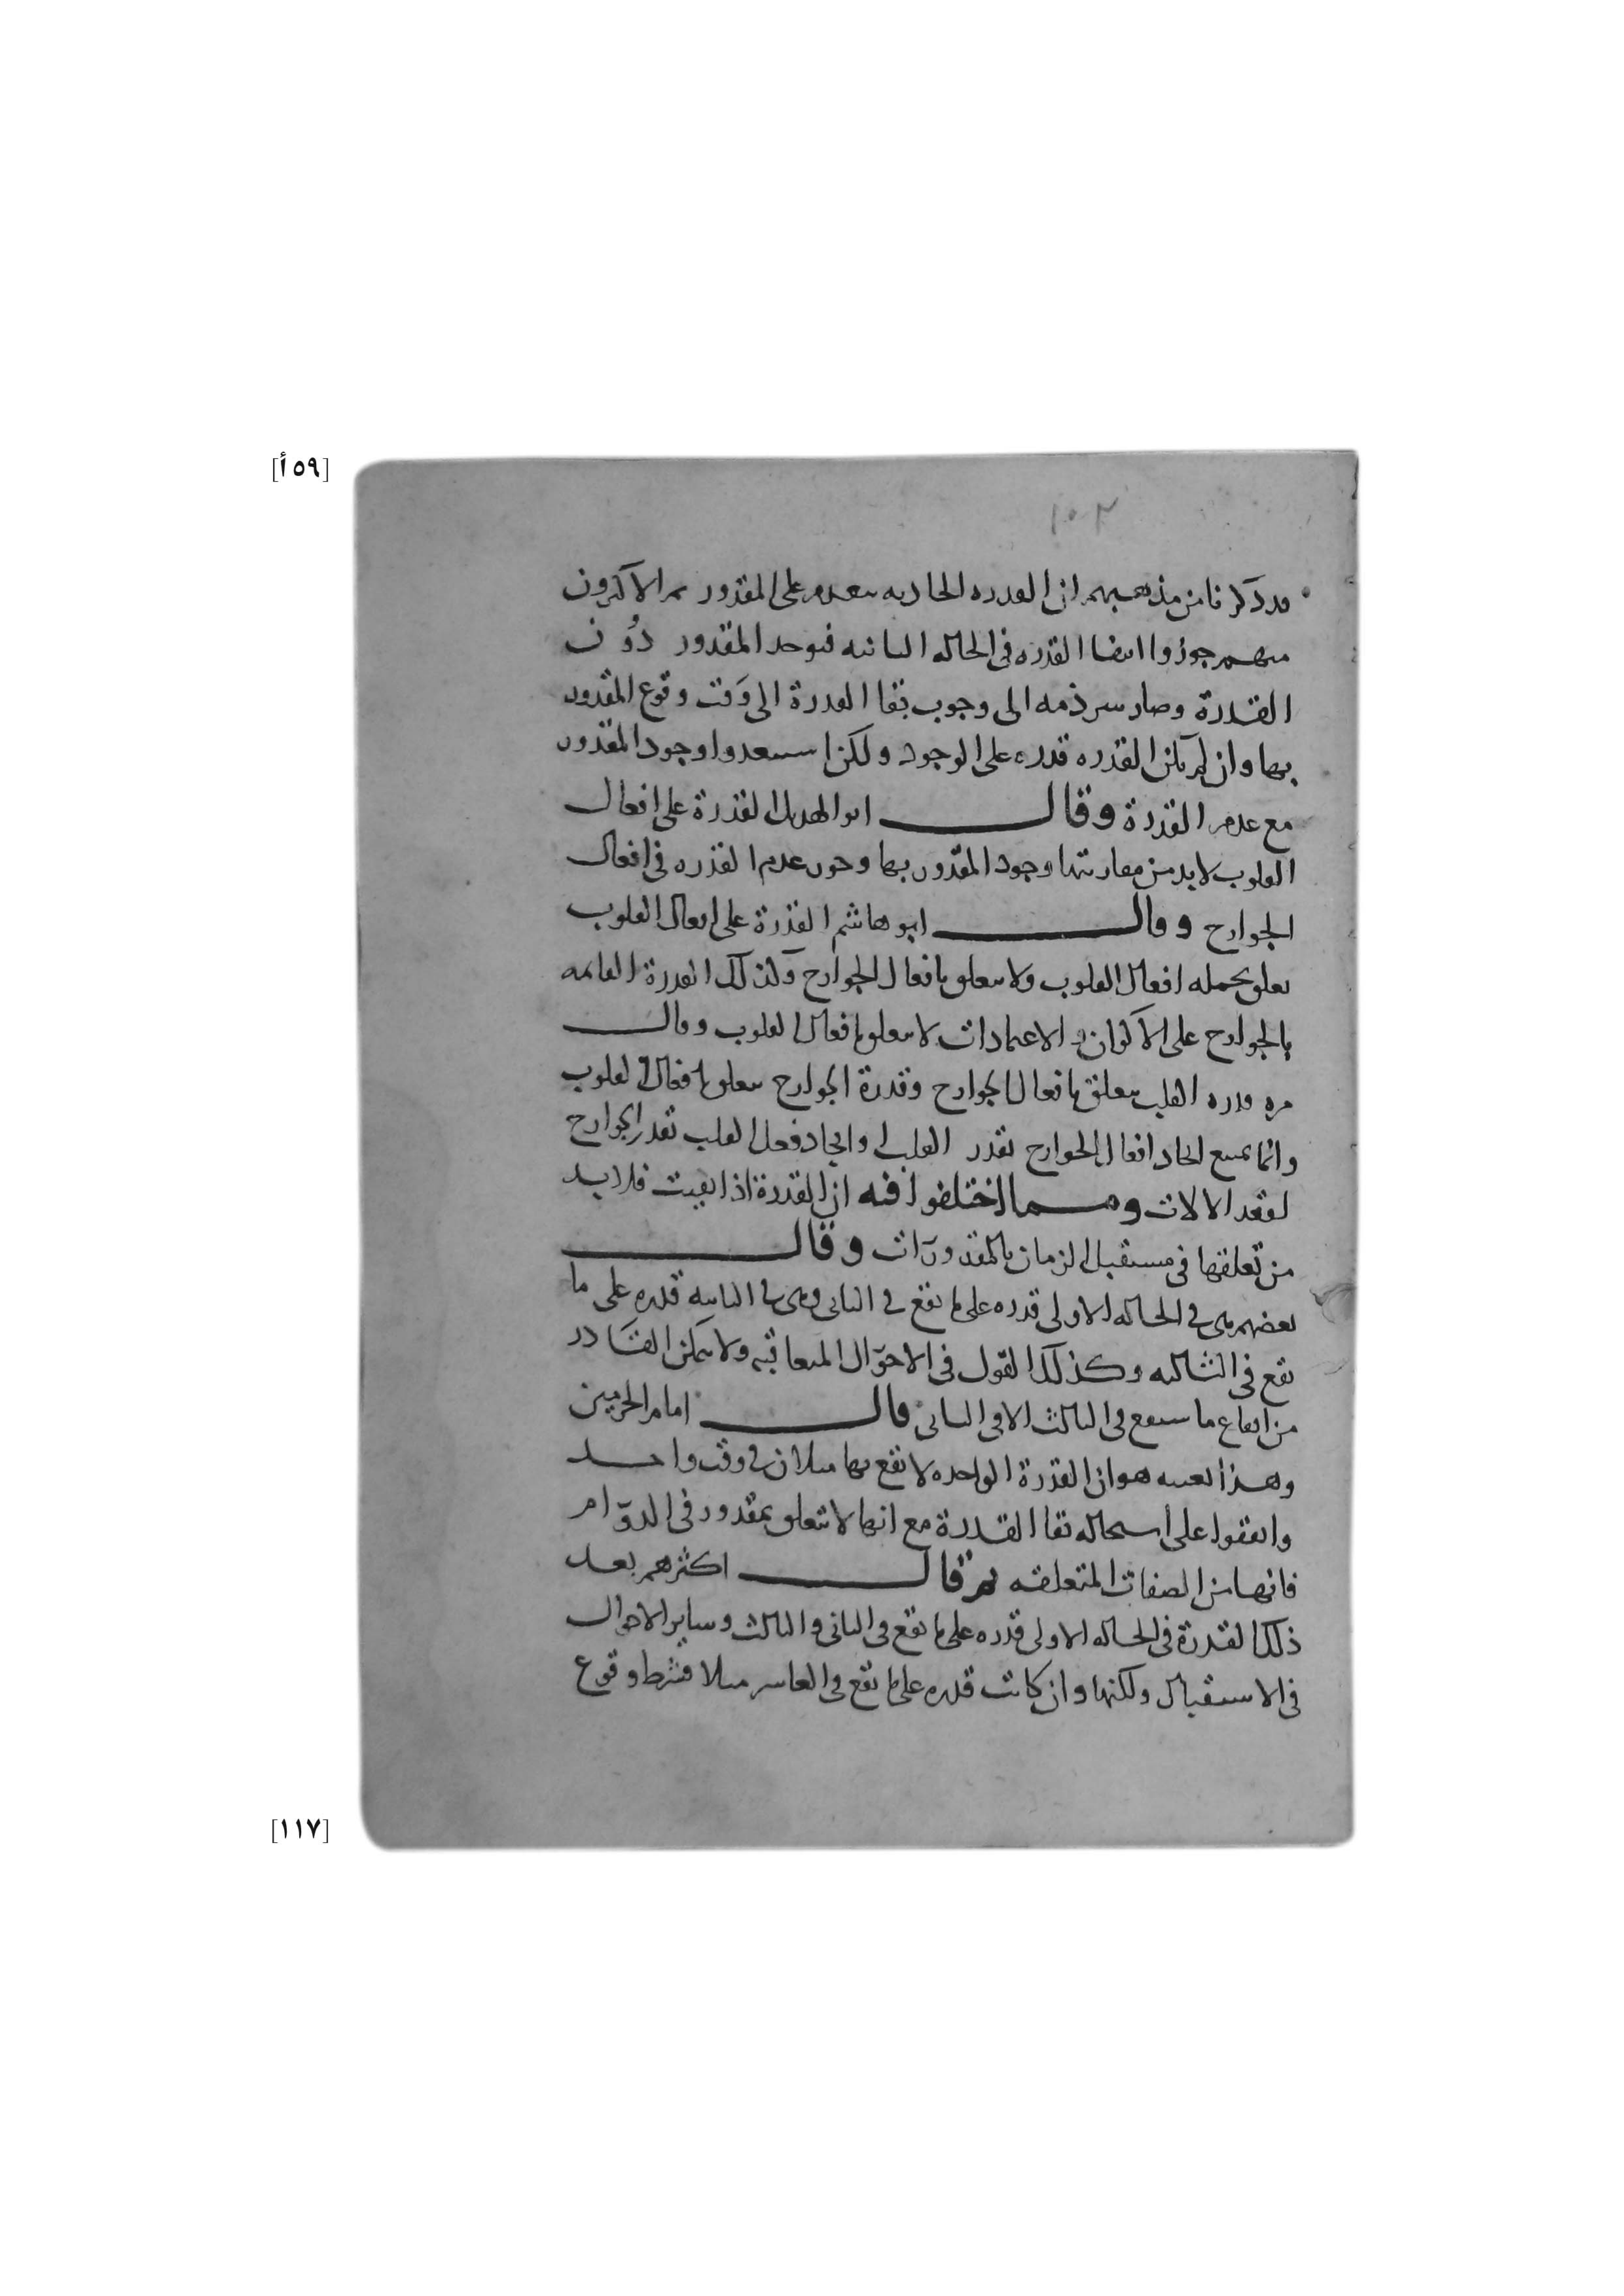 [٥٩أ]
١٠٢
قد ذكرنا من مذهبهم ان القدره الحادثه تتقدم على المقدور ثم الاكثرون
منهم جوزوا انتفا القدره في الحاله الثانيه فيوجد المقدور دون
القدرة وصار شرذمه الى وجوب بقا القدرة الى وَقت وقوع المقدور
بها وان لم تكن القدره قدره على الوجود ولكن استبعدوا وجود المقدور
مع عدم القدرة وقال ابو الهذيل القدرة على افعال
القلوب لا بد من مقارنتها وجود المقدور بها وجوز عدم القدره في افعال
الجوارح وقال ابو هاشم القدرة على افعال القلوب
تتعلق بجمله افعال القلوب ولا تتعلق بافعال الجوارح وكذلك القدرة القايمه
بالجوارح على الاكوان والاعتمادات لا تتعلق بافعال القلوب وقال
مره قدره القلب تتعلق بافعال الجوارح وقدرة الجوارح تتعلق بافعال القلوب
وانما يمتنع ايجاد افعال الجوارح بقدر القلب وايجاد فعل القلب بقدر الجوارح
لفقد الالات ومما اختلفوا فيه ان القدرة اذا بقيت فلا بد
من تعلقها في مستقبل الزمان بالمقدورات وقال
بعضهم هي في الحاله الاولى قدره على ما يقع في الثاني وهي في الثانيه قدره على ما
يقع في الثالثه وكذلك القول في الاحوال المتعاقبه ولا يتمكن القادر
من ايقاع ما سيقع في الثالث الا في الثاني قال امام الحرمين
وهذا بعينه هو ان القدرة الواحده لا يقع بها مثلان في وقت واحد
واتفقوا على استحاله بقا القدرة مع انها لا تتعلق بمقدور في الدوّام
فانها من الصفات المتعلقه ثم قال اكثرهم بعد
ذلك القدرة في الحاله الاولى قدره على ما يقع في الثاني والثالث وساير الاحوال
في الاستقبال ولكنها وان كانت قدره على ما يقع في العاشر مثلا فشرط وقوع
[١١٧]